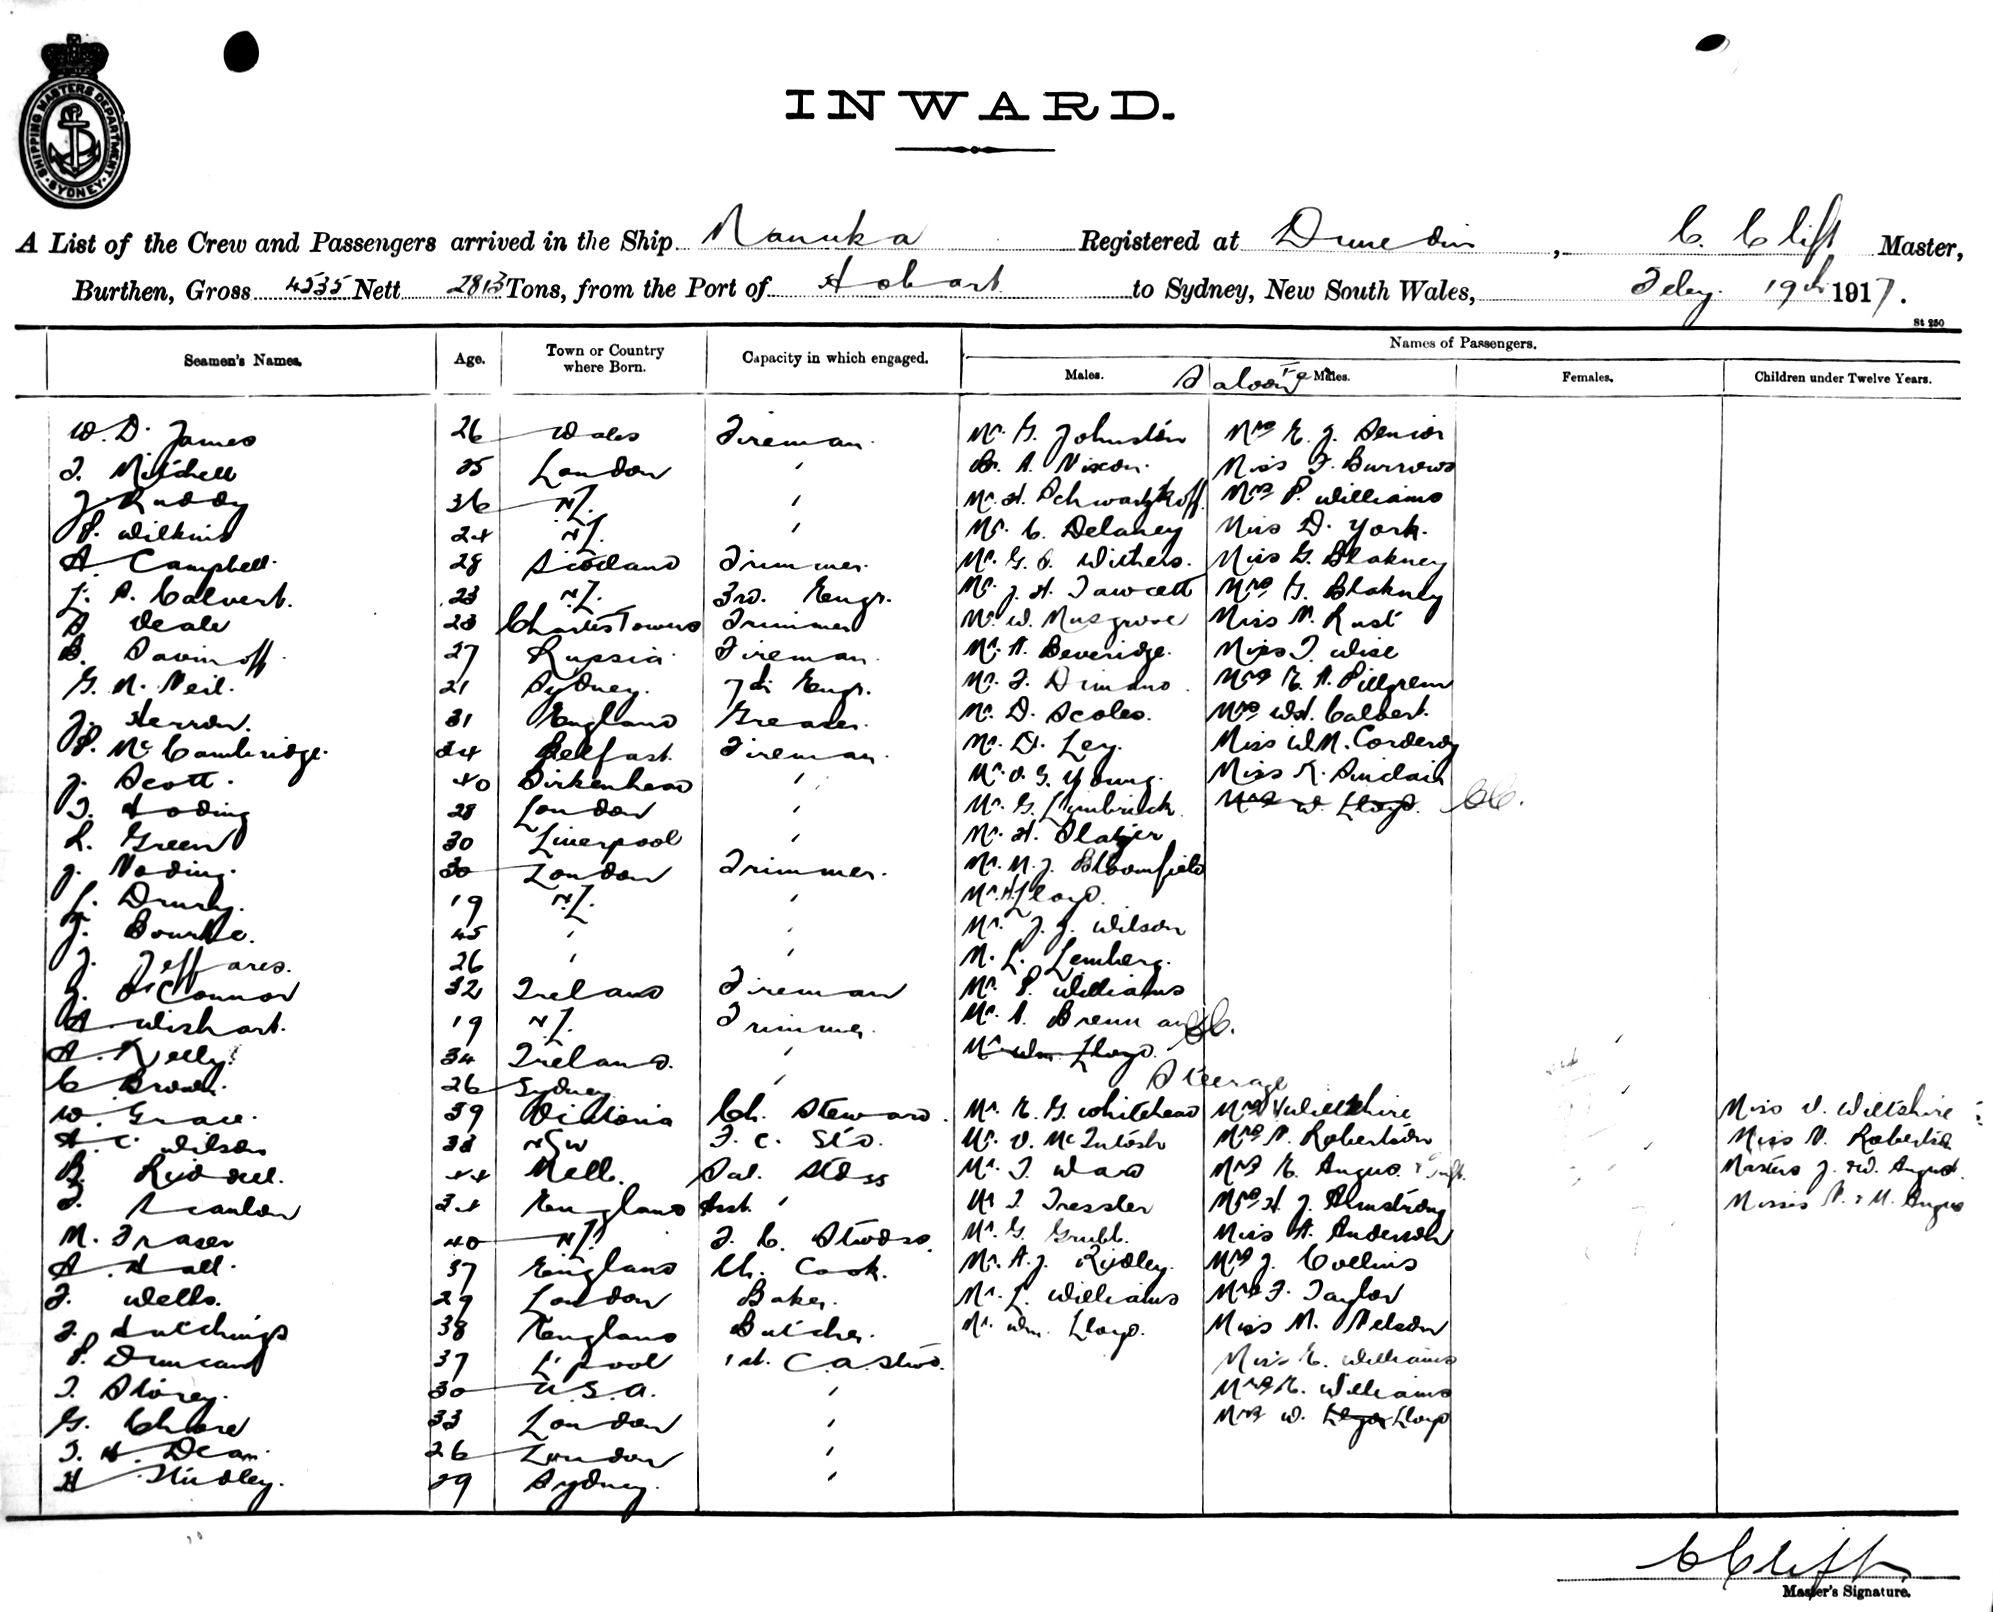 SHIPPING MASTERS DEPARTMENT. SYDNEY.
INWARD.
A List of the Crew and Passengers arrived in the Ship Manuka Registered at Dunedin, C. Clift Master,
Burthen, Gross 4535 Nett 2813 Tons, from the Port of Hobart to Sydney, New South Wales, Feby. 19th 1917.
St 250
Seamen's Names. Age. Town or Country where Born. Capacity in which engaged. Names of Passengers.
Males. Saloon Fe Males. Females. Children under Twelve Years.
W. D. James 26 Wales Fireman. Mr. G. Johnston Mrs E. J. Senior
F. Mitchell 25 London " Dr. A. Nixon. Miss F. Burrows
J. Ruddy 36 N.Z. " Mr. H. Schwartzkoff. Mrs P. Williams
P. Wilkins 24 N.Z. " Mr. C. Delaney Miss D. York.
A. Campbell. 28 Scotland Trimmer. Mr. G. S. Withers. Miss G. Blakney
L. S. Calvert. 23 N.Z. 3rd. Engr. Mr. J. H. Fawcett Mrs G. Blakney
S. Veale 23 Charles Towers Trimmer Mr. W. Musgrove Miss N. Rust
B. Savinoff. 27 Russia Fireman. Mr. A. Beveridge. Miss I. Wise
G. N. Neil. 21 Sydney. 7th Engr. Mr. F. Dimano. Mrs E. A. Pillgrem
J. Herron. 31 England Greaser. Mr. D. Scoles. Mrs W.H. Calvert.
P. McCambridge. 24 Belfast Fireman. Mr. D. Ley. Miss W.M. Corderoy
J. Scott. 40 Birkenhead " Mr. O. G. Young. Miss K. Sinclair
T. Hoding 28 London " Mr. G. Lymbrick. Mrs W. Lloyd. CC.
L. Green 30 Liverpool " Mr. H. Slatjer
J. Noding. 30 London Trimmer. Mr. N. J. Bloomfield
L. Drury. 19 N.Z. " Mr. H. Lloyd.
J. Bourke. 45 " " Mr. J. J. Wilson
J. Jeffares. 26 " " M. L. Lemberg.
J. O'Connor 32 Ireland Fireman Mr. P. Williams
A. Wishart. 19 N.Z. Trimmer. Mr. A. Brennan CC.
A. Kelly. 34 Ireland. " Mr. Wm. Lloyd.
C. Brown. 26 Sydney " Steerage
W. Grace. 39 Victoria Ch. Steward. Mr. E. G. Whitehead Mrs V Wiltshire Miss V. Wiltshire
A. C. Wilson 33 NSW F. C. Std. Mr. V. McIntosh Mrs N. Robertson Miss N. Robertson
B. Riddell. 44 Melb. Sal. Stdss Mr. T. Ward Mrs E. Angus Masters J. & W. Angus.
F. Scanlon 24 England Asst. " Mr. T. Tressler Mrs H. J. Armstrong Misses N. & M. Angus
M. Fraser 40 N.Z. F. C. Stwdss. Mr. G. Grubb. Miss A. Anderson
A. Hall. 37 England Ch. Cook. Mr. A. J. Ridley. Mrs J. Collins
F. Wells. 29 London Baker. Mr. L. Williams Mrs F. Taylor
F. Hutchings 38 England Butcher. Mr. Wm. Lloyd. Miss M. Nelson
P. Duncan 37 L'pool 1st. C. a. Stwd. Miss E. Williams
T. Storey. 30 U.S.A. " Mrs E. Williams
G. Chase 33 London " Mrs W. Lloyd
T. H. Dean. 26 London "
H. Hindley. 29 Sydney. "
C Clift
Master's Signature.